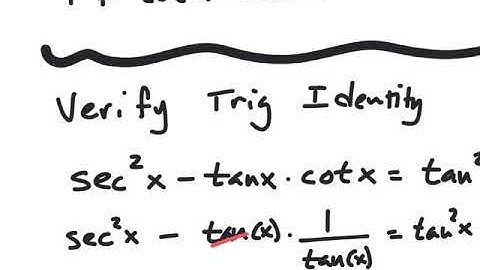 Verify Trig Identity
sec²x − tanx · cotx = tan²
sec²x − tan(x) · 1/tan(x) = tan²x